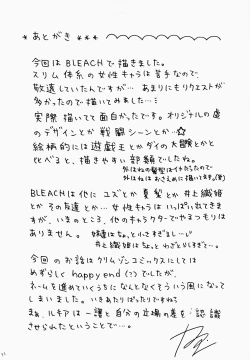 *あとがき***
今回はBLEACHで描きました。
スリム体系の女性キャラは苦手なので
敬遠していたんですが… あまりにもリクエストが
多かったので描いてみました…
実際描いてて面白かったです。オリジナルの虚
のデザインとか戦闘シーンとか…☆
絵柄的には遊戯王とかダイの大冒険とかと
比べると、描きやすい部類でしたね。
BLEACHは他にユズとか夏梨とか井上織姫
とかその友達とか…女性キャラはいっぱい出てきま
すが、いまのところ、他のキャラクターでやるつもりは
ありません。
今回のお話はクリムゾンコミックスにしては
めずらしくhappy end(?)でしたが、
ネームを進めていくうちになんとなくそういう風になって
しまいました。いきあたりばったりですねぇ
まぁ、ルキアは一護と自分の立場の差を認識
させられたということで…。